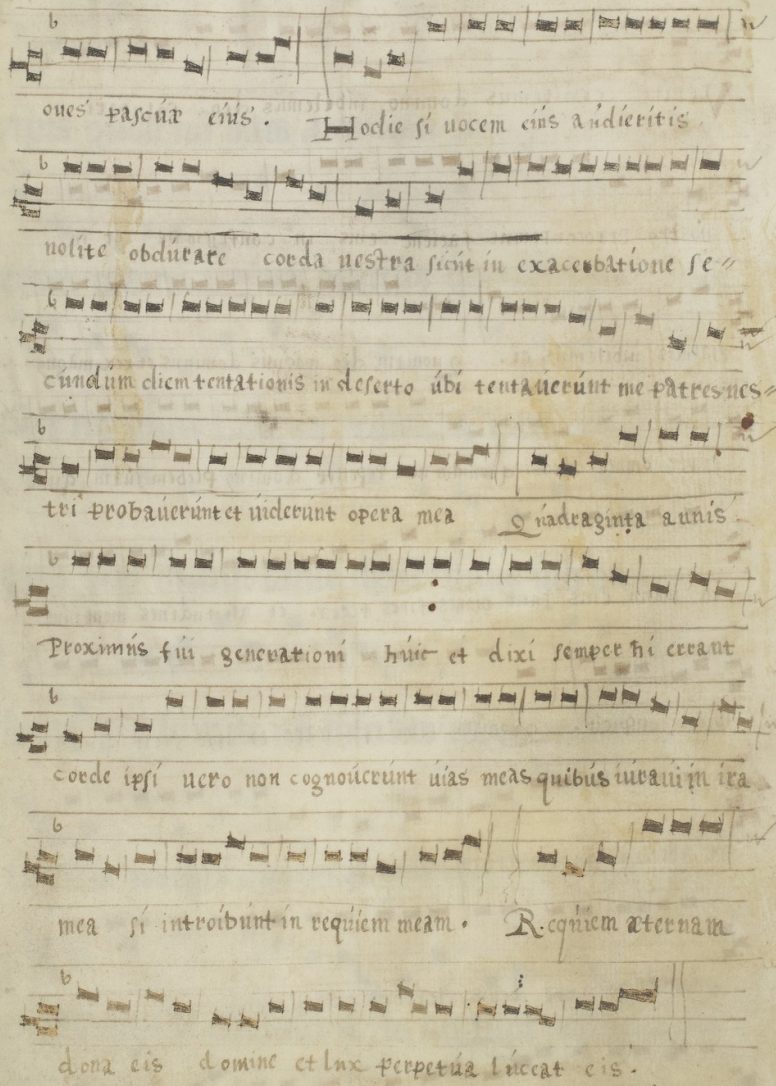 oues pascuæ eius. Hodie si uocem eius audieritis
nolite obdurare corda uestra sicut in exacerbatione se"
cundum diem tentationis in deserto ubi tentauerunt me patres ues"
tri probauerunt et uiderunt opera mea Quadraginta annis
Proximus fui generationi huic et dixi semper hi errant
corde ipsi uero non cognouerunt uias meas quibus iuraui in ira
mea si introibunt in requiem meam. Requiem æternam
dona eis domine et lux perpetua luceat eis.